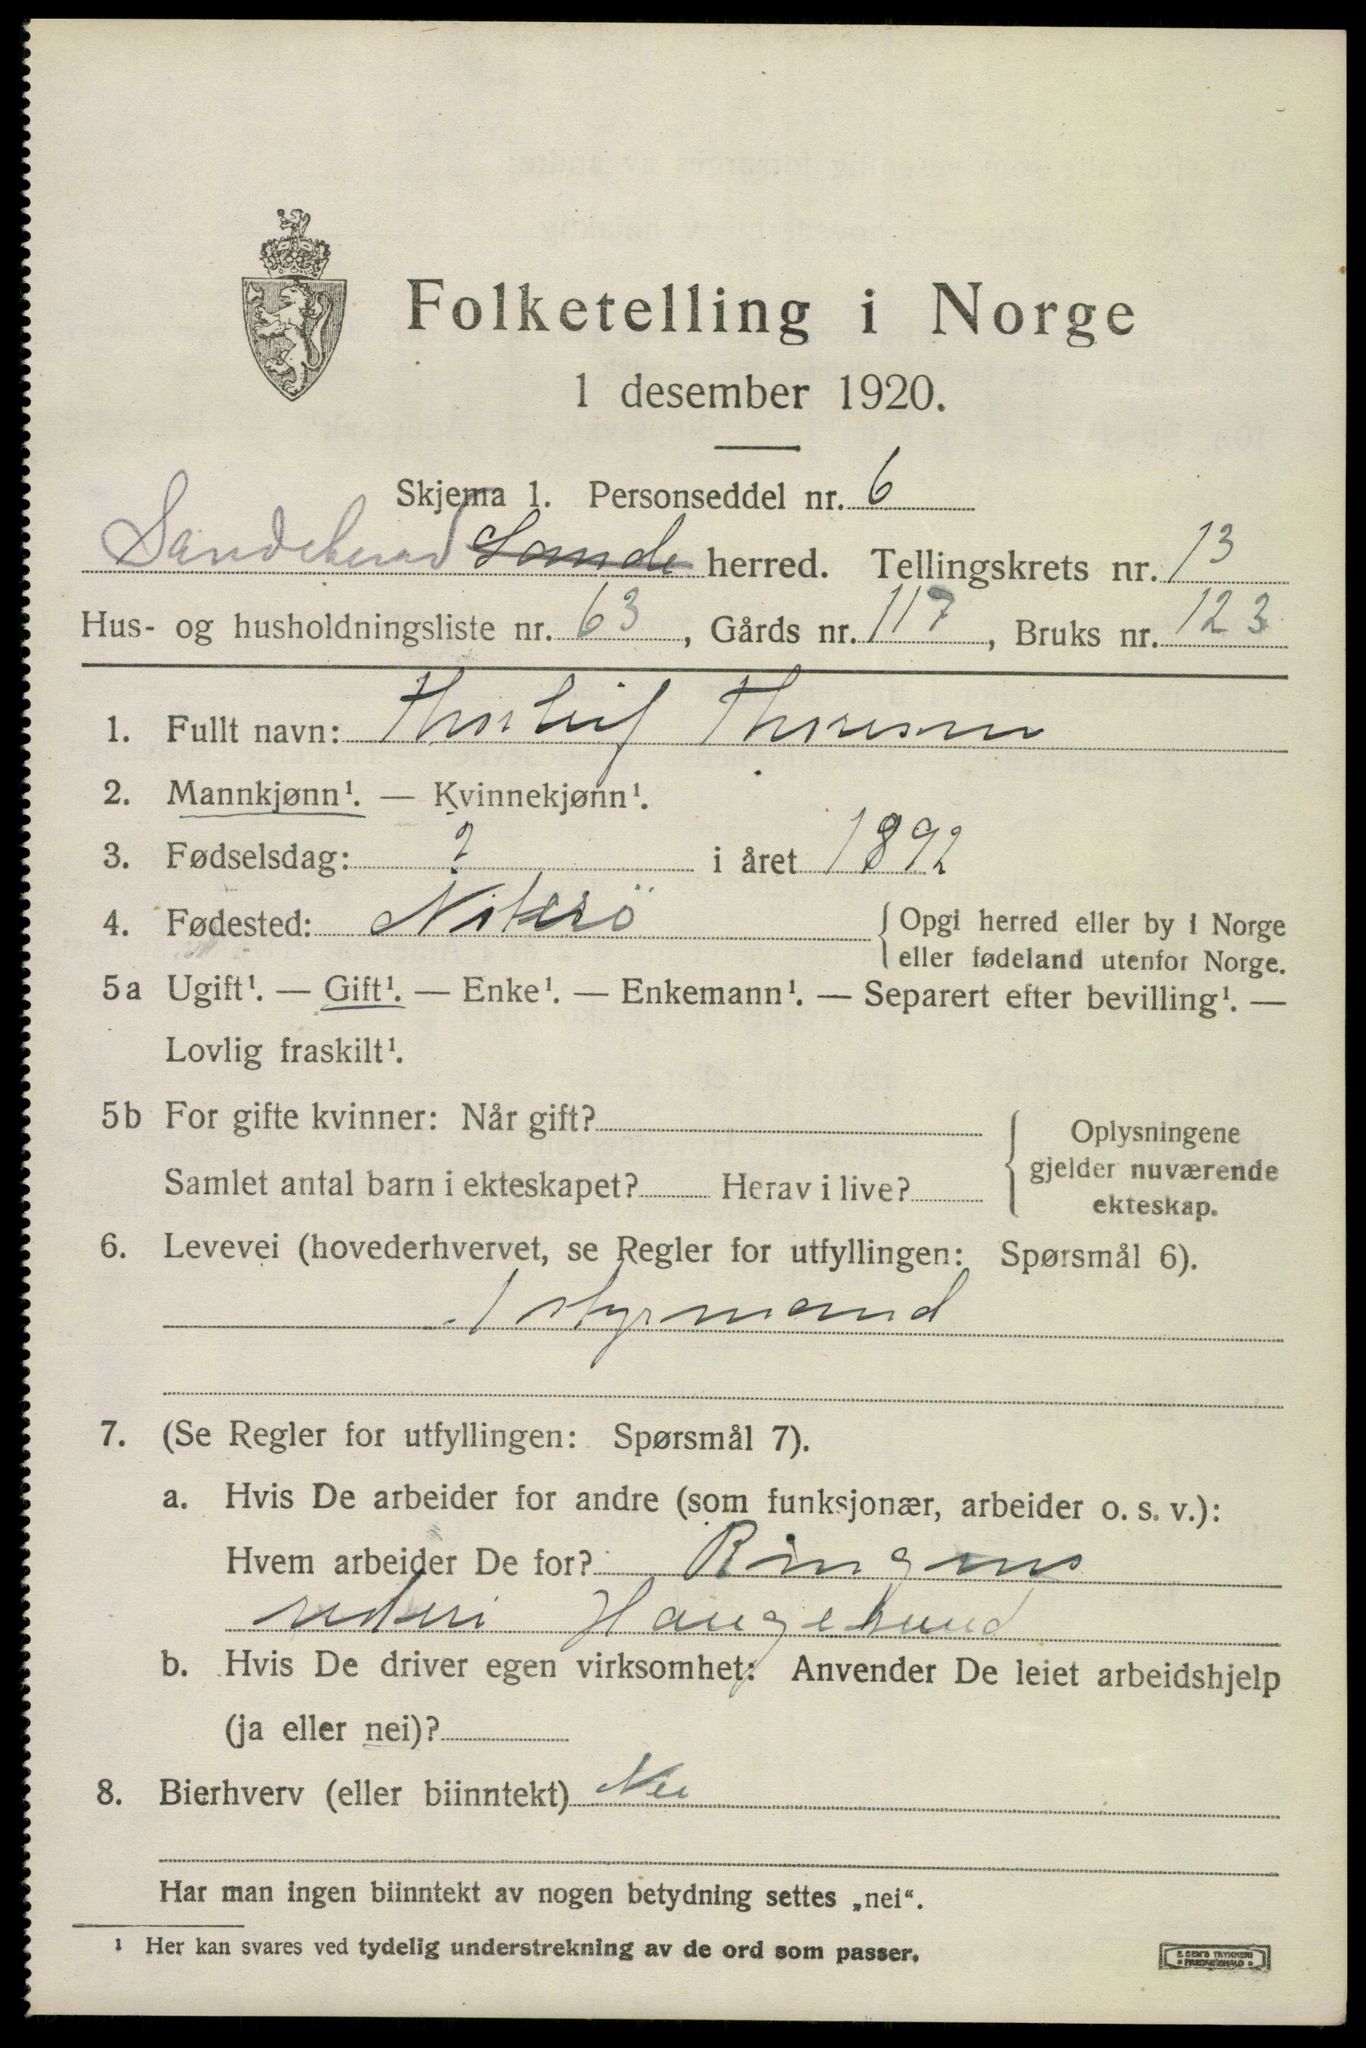 Folketelling i Norge
1 desember 1920.
Skjema 1. Personseddel nr. 6
Sandeherad Sande herred. Tellingskrets nr. 13
Hus- og husholdningsliste nr. 63, Gårds nr. 117, Bruks nr. 123
1. Fullt navn: Thorleif Thoresen
2. Mannkjønn¹. — Kvinnekjønn¹.
3. Fødselsdag: ? i året 1892
4. Fødested: Nøterö { Opgi herred eller by i Norge
eller fødeland utenfor Norge.
5a Ugift¹. — Gift¹. — Enke¹. — Enkemann¹. — Separert efter bevilling¹. —
Lovlig fraskilt¹.
5b For gifte kvinner: Når gift?
Samlet antal barn i ekteskapet? Herav i live?
{ Oplysningene
gjelder nuværende
ekteskap.
6. Levevei (hovederhvervet, se Regler for utfyllingen: Spørsmål 6).
1 styrmand
7. (Se Regler for utfyllingen: Spørsmål 7).
a. Hvis De arbeider for andre (som funksjonær, arbeider o. s. v.):
Hvem arbeider De for? Ringens
rederi Haugesund
b. Hvis De driver egen virksomhet: Anvender De leiet arbeidshjelp
(ja eller nei)?
8. Bierhverv (eller biinntekt) Nei
Har man ingen biinntekt av nogen betydning settes „nei“.
¹ Her kan svares ved tydelig understrekning av de ord som passer.
E. SEM'S TRYKKERI
FREDRIKSHALD